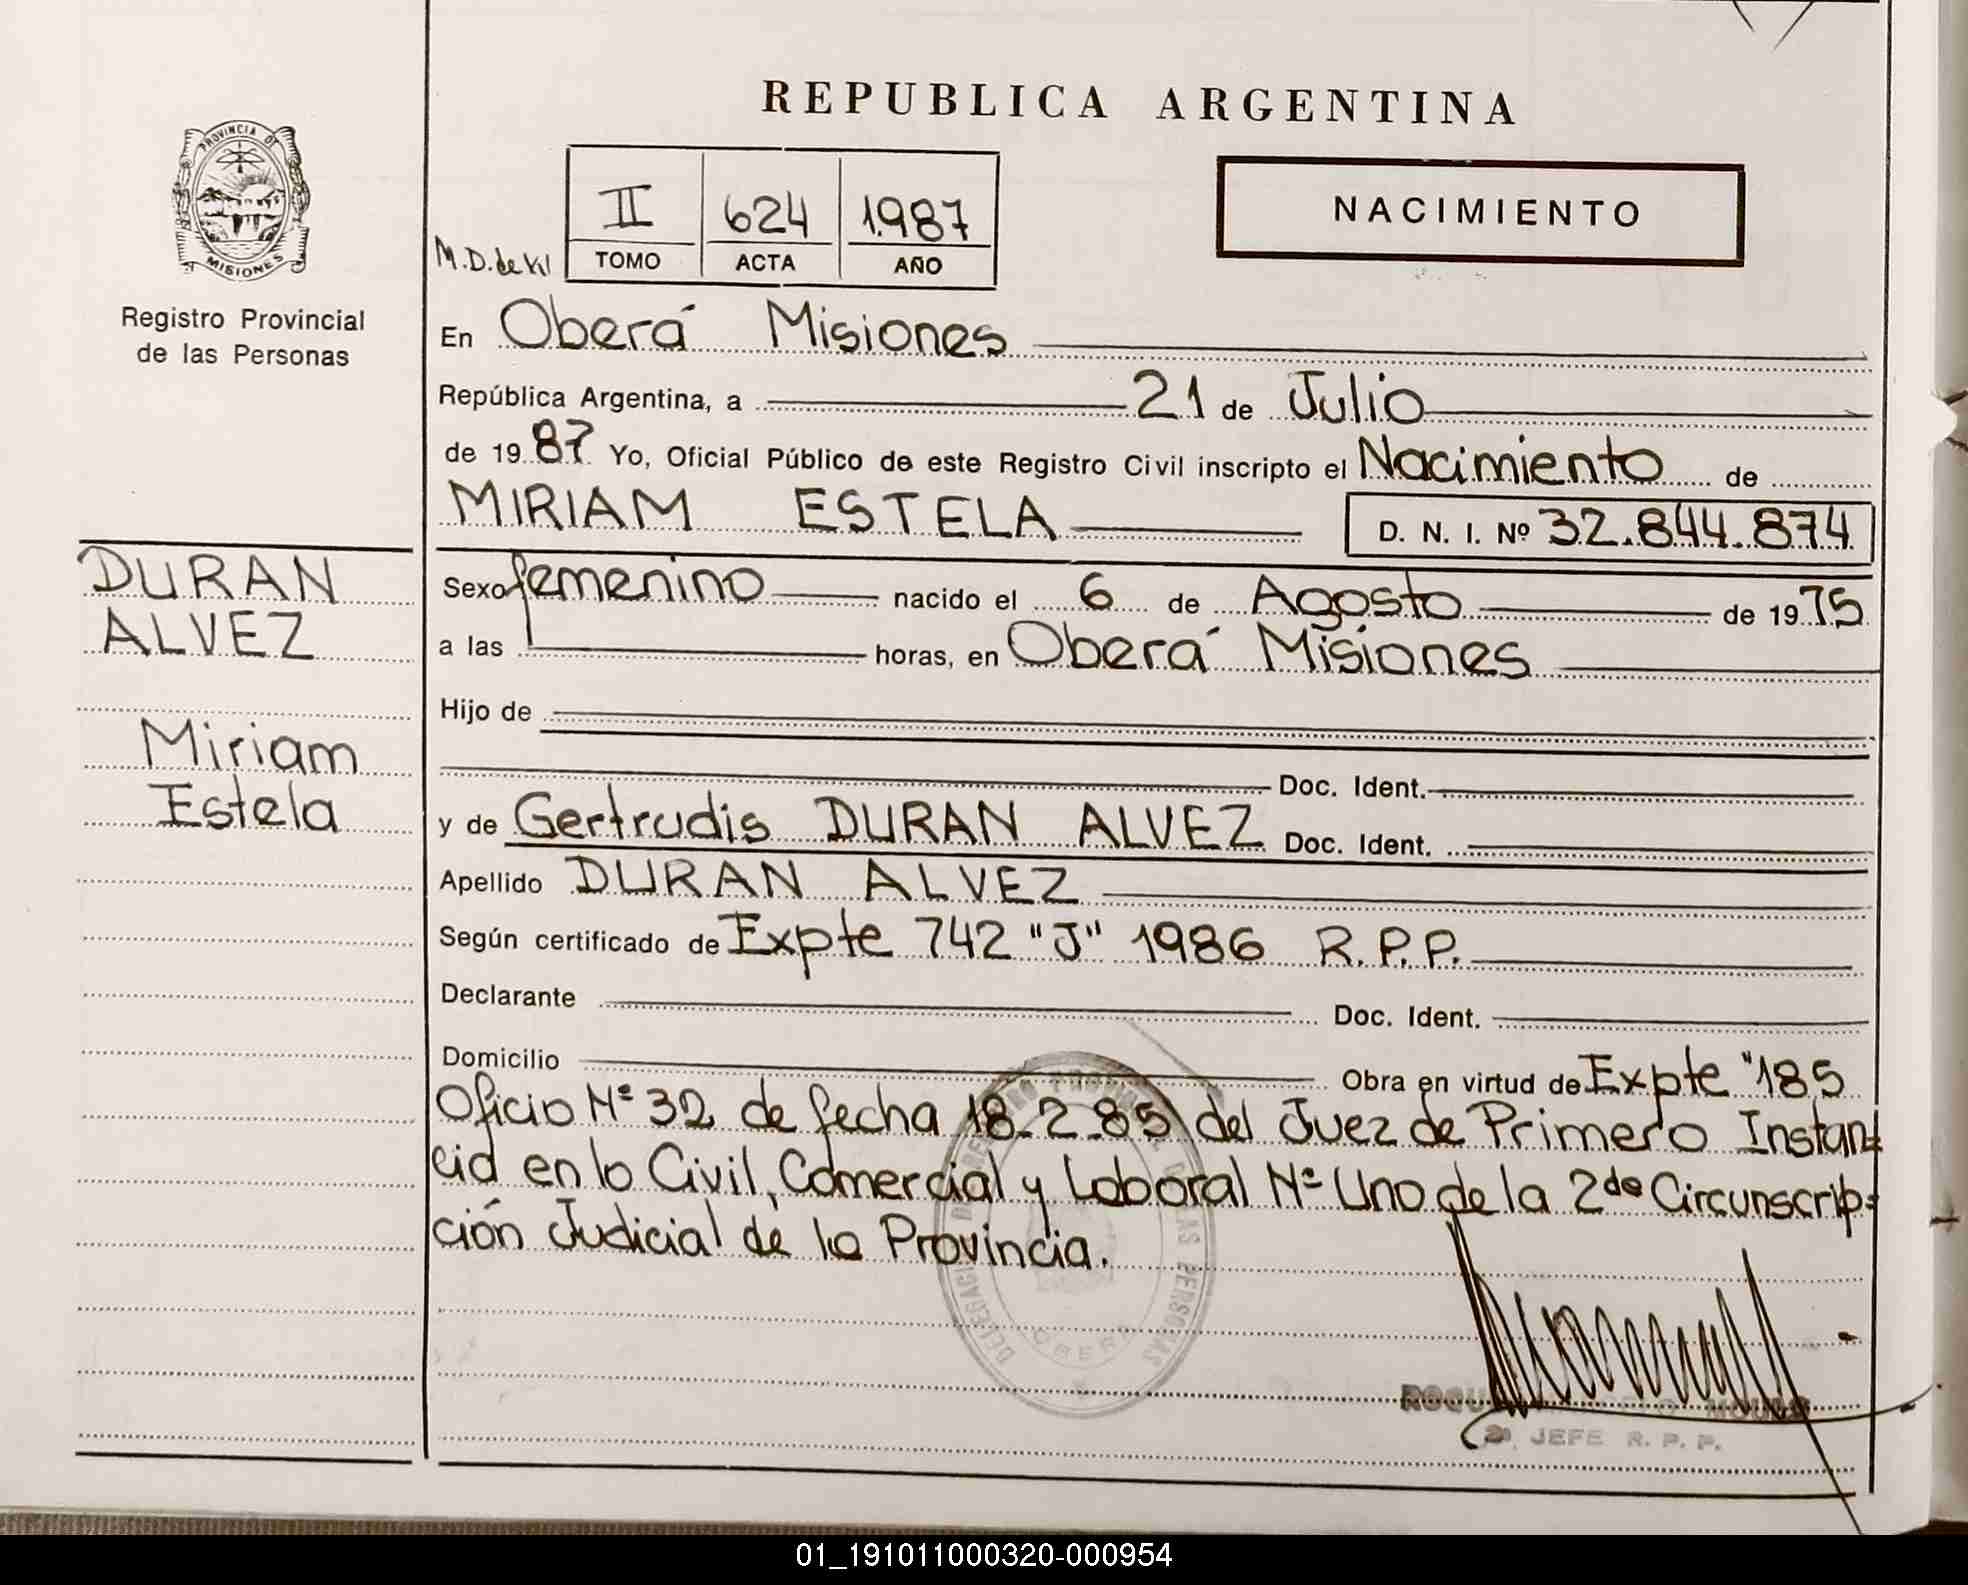 REPUBLICA ARGENTINA
PROVINCIA DE
MISIONES
Registro Provincial
de las Personas
NACIMIENTO
II 624 1.987
TOMO ACTA AÑO
M.D. de
En Oberá Misiones
República Argentina, a 21 de Julio
de 19 87 Yo, Oficial Público de este Registro Civil inscripto el Nacimiento de
MIRIAM ESTELA D. N. I. Nº 32.844.874
DURAN
ALVEZ
Miriam
Estela
Sexo femenino nacido el 6 de Agosto de 19 75
a las horas, en Oberá Misiones
Hijo de
Doc. Ident.
y de Gertrudis DURAN ALVEZ Doc. Ident.
Apellido DURAN ALVEZ
Según certificado de Expte 742 "J" 1986 R.P.P.
Declarante Doc. Ident.
Domicilio Obra en virtud de Expte "185
Oficio Nº 32 de fecha 18-2-85 del Juez de Primero Instan=
cia en lo Civil, Comercial y Laboral Nº Uno de la 2da Circunscrip=
ción Judicial de la Provincia.
JEFE R. P. P.
01_191011000320-000954